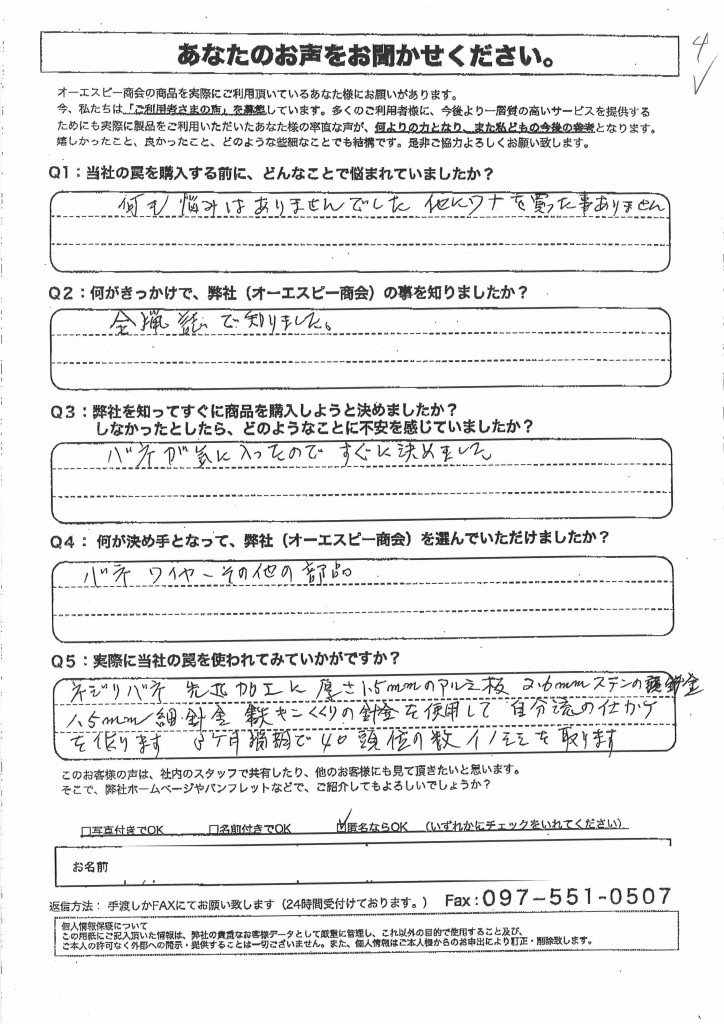 4
あなたのお声をお聞かせください。
オーエスピー商会の商品を実際にご利用頂いているあなた様にお願いがあります。
今、私たちは「ご利用者さまの声」を募集しています。多くのご利用者様に、今後より一層質の高いサービスを提供する
ためにも実際に製品をご使用いただいたあなた様の率直な声が、何よりの力となり、また私どもの今後の参考となります。
嬉しかったこと、良かったこと、どのような些細なことでも結構です。是非ご協力よろしくお願い致します。
Q1：当社の罠を購入する前に、どんなことで悩まれていましたか？
何も悩みはありませんでした 他にワナを買った事ありません
Q2：何がきっかけで、弊社（オーエスピー商会）の事を知りましたか？
全猟誌で知りました。
Q3：弊社を知ってすぐに商品を購入しようと決めましたか？
しなかったとしたら、どのようなことに不安を感じていましたか？
バネが気に入ったので すぐに決めました
Q4：何が決め手となって、弊社（オーエスピー商会）を選んでいただけましたか？
バネ ワイヤーその他の部品
Q5：実際に当社の罠を使われてみていかがですか？
ネジリバネ 加工に厚さ1.5mmのアルミ板 2.6mmステンの針金
1.5mm細針金 鉄キンくくりの針金を使用して自分流の仕カケ
を作ります 3ケ月猟期で40頭位の数イノシシを取ります
このお客様の声は、社内のスタッフで共有したり、他のお客様にも見て頂きたいと思います。
そこで、弊社ホームページやパンフレットなどで、ご紹介してもよろしいでしょうか？
□写真付きでOK □名前付きでOK ☑匿名ならOK （いずれかにチェックをいれてください）
お名前
返信方法：手渡しかFAXにてお願い致します（24時間受付けております。） Fax：097−551−0507
個人情報保護について
この用紙にご記入頂いた情報は、弊社の貴重なお客様データとして厳重に管理し、これ以外の目的で使用すること及び、
ご本人の許可なく外部への開示・提供することは一切ございません。また、個人情報はご本人様からのお申出により訂正・削除致します。